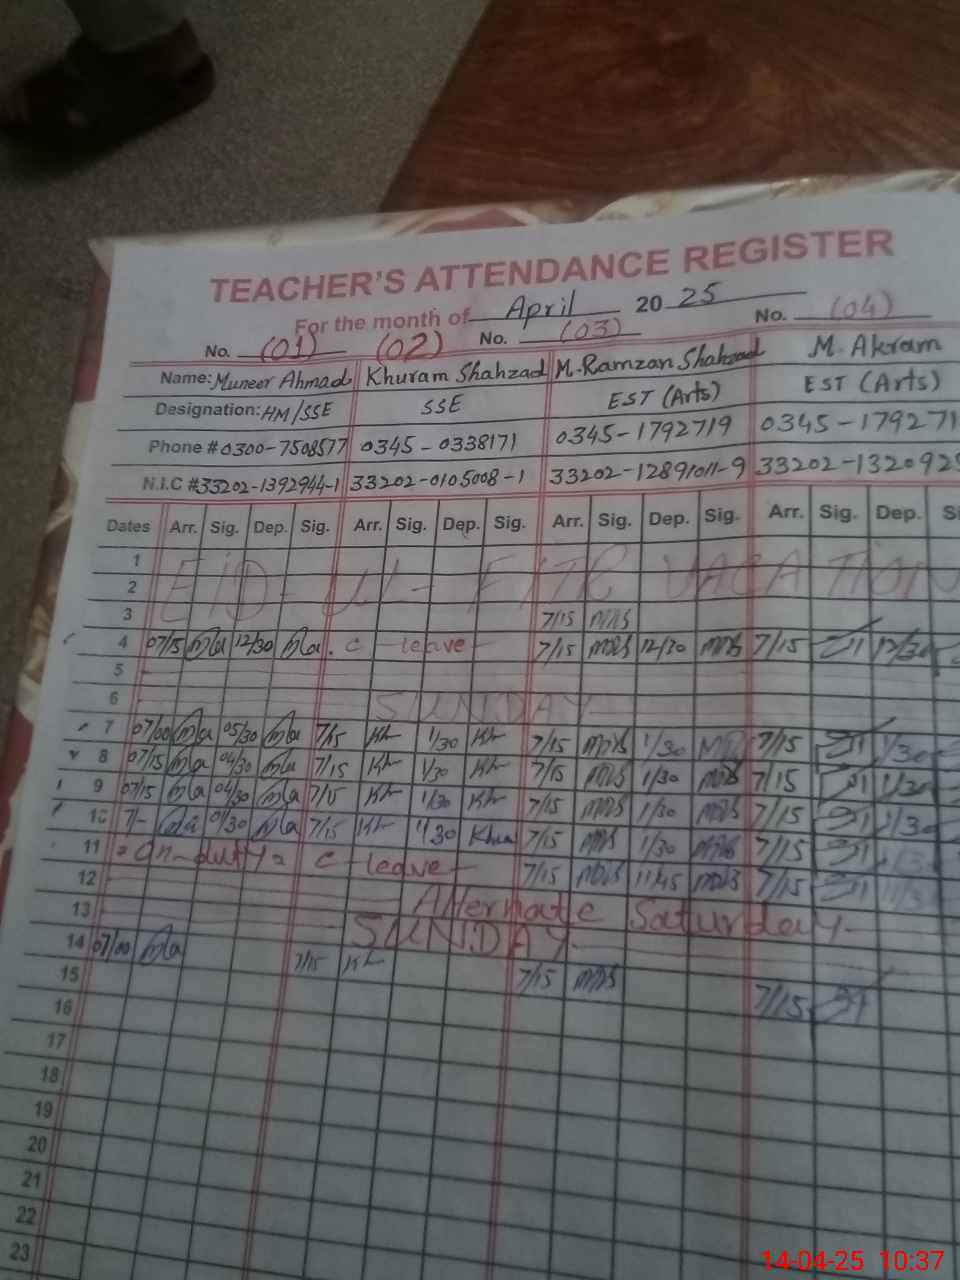 TEACHER'S ATTENDANCE REGISTER
For the month of April 20 25
No. (01) (02) No. (03) No. (04)
Name: Muneer Ahmad Khuram Shahzad M. Ramzan Shahzad M. Akram
Designation: HM/SSE SSE EST (Arts) EST (Arts)
Phone # 0300-7508577 0345-0338171 0345-1792719 0345-179271
N.I.C # 33202-1392944-1 33202-0105008-1 33202-12891011-9 33202-132092
Dates Arr. Sig. Dep. Sig. Arr. Sig. Dep. Sig. Arr. Sig. Dep. Sig. Arr. Sig. Dep. Si
1 EID-UL-FITR VACATION
2
3 7/15
4 07/15 12/30 c-leave 7/15 12/30 7/15 12/30
5
6 SUNDAY
7 07/00 05/30 7/15 1/30 7/15 1/30 7/15 1/30
8 07/15 04/30 7/15 1/30 7/15 1/30 7/15 1/30
9 07/15 04/30 7/15 1/30 7/15 1/30 7/15 1/30
10 7/- 7/15 1/30 7/15 1/30 7/15
11 On-duty c-leave 7/15 11/45 7/15
12 Alternate Saturday
13 SUNDAY
14 07/00 7/15 7/15 7/15
15
16
17
18
19
20
21
22
23
14-04-25 10:37